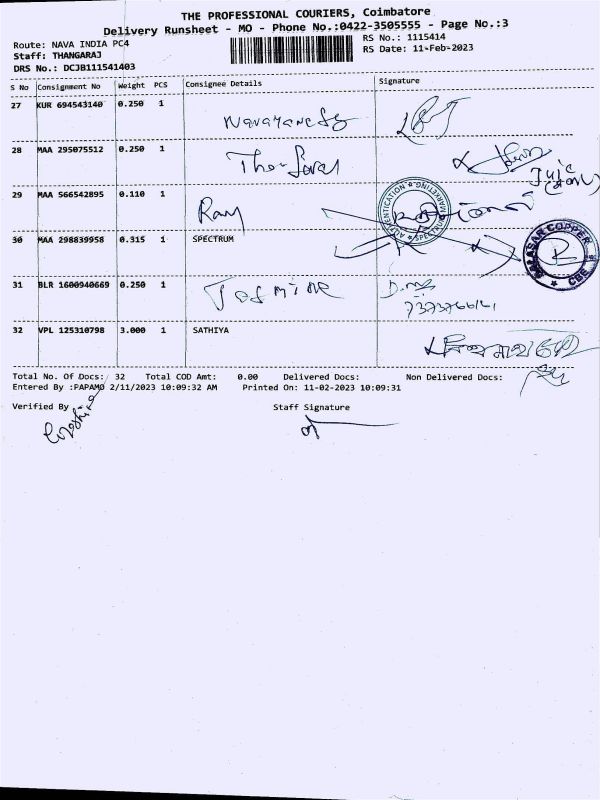 THE PROFESSIONAL COURIERS, Coimbatore
Delivery Runsheet - MO - Phone No.:0422-3505555 - Page No.:3
Route: NAVA INDIA PC4
RS No.: 1115414
Staff: THANGARAJ
RS Date: 11-Feb-2023
DRS No.: DCJB111541403
S No Consignment No Weight PCS Consignee Details Signature
27 KUR 694543140 0.250 1
28 MAA 295075512 0.250 1
29 MAA 566542895 0.110 1 Ram
30 MAA 298839958 0.315 1 SPECTRUM
AUTHENTICATION * SPECTRUM MARKETING *
BALASAR COPPER * CBE *
31 BLR 1600940669 0.250 1 Jasmine
32 VPL 125310798 3.000 1 SATHIYA
Total No. Of Docs: 32 Total COD Amt: 0.00 Delivered Docs: Non Delivered Docs:
Entered By :PAPAMO 2/11/2023 10:09:32 AM Printed On: 11-02-2023 10:09:31
Verified By
Staff Signature